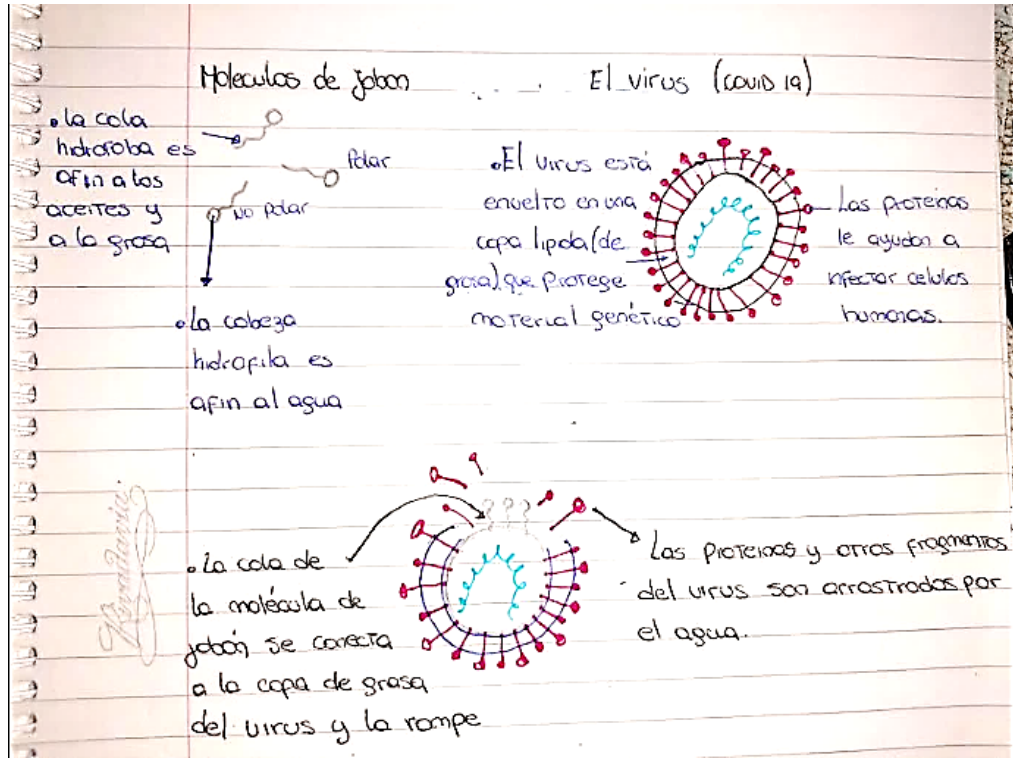 Moleculas de jabon
El virus (COVID 19)
• la cola
hidrofoba es
afin a los
aceites y
a la grasa
Polar
No polar
• la cabeza
hidrofila es
afin al agua
• El virus está
envuelto en una
capa lipida (de
grasa) que protege
material genético
Las proteinas
le ayudan a
infectar celulas
humanas.
• La cola de
la molécula de
jabón se conecta
a la capa de grasa
del virus y la rompe
Las proteinas y otros fragmentos
del virus son arrastrados por
el agua.